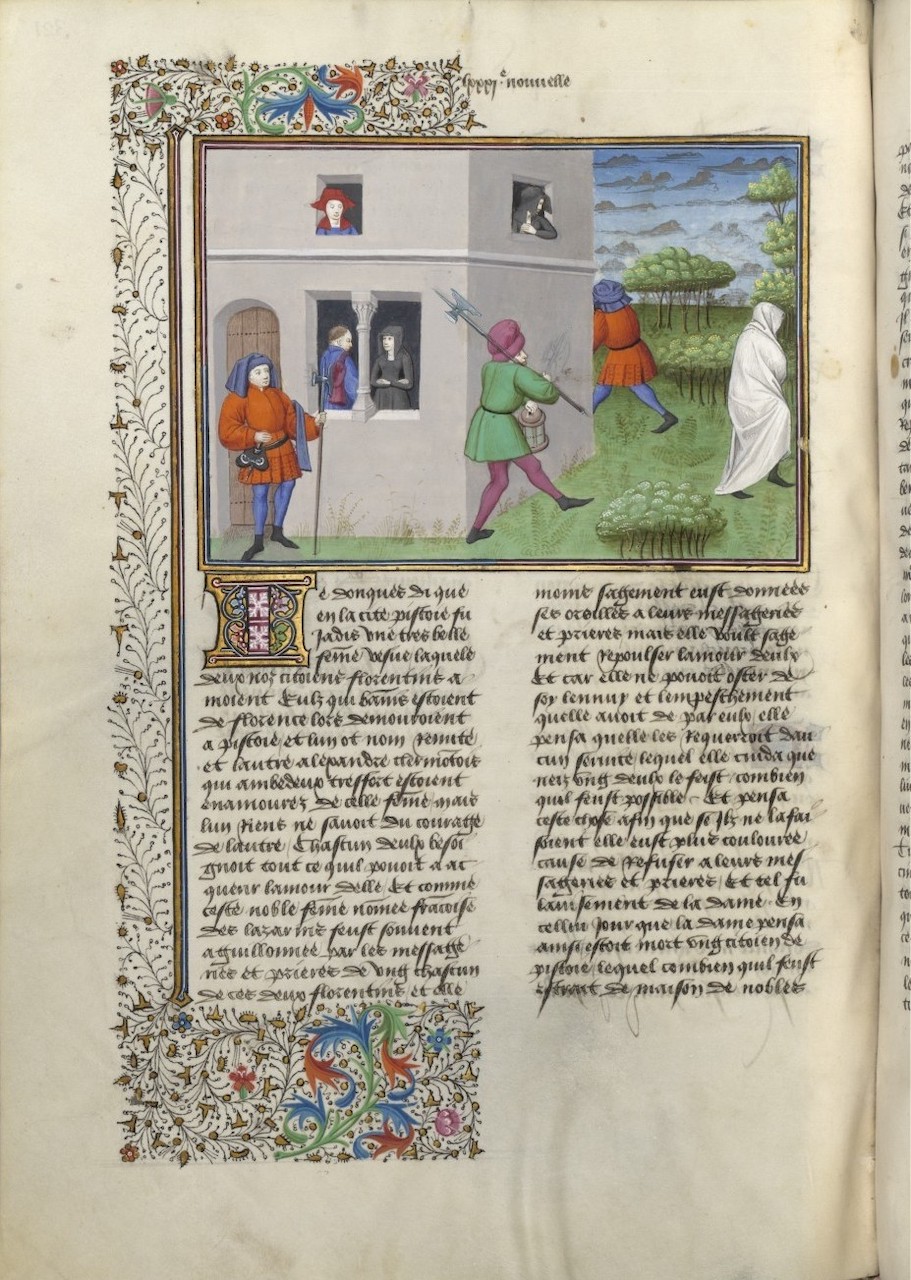 lxxxi.e nouvelle
e donques di que
en la cite pistoie fu
Jadis vne tres belle
fem̄e vesue laquele
deux noz citoiens florentins a
moient Ceulz qui bānis estoient
de florence lors demouroient
a pistoie et lun ot nom Remite
et lautre alexandre clermotois
qui ambedeux tresfort estoient
enamourez de celle fem̄e mais
lun Riens ne sauoit du courage
de lautre Chascun deulx besoi
gnoit tout ce quil pouoit a ac
querir lamour delle Et comme
ceste noble fem̄e nōmee frācoise
des lazarins feust souuent
aguillonnee par les message
ries et prieres de vng chascun
de ces deux florentins et elle
moins sagement eust donnees
ses oreilles a leurs messageries
et prieres mais elle voult sage
ment Repoulser lamour deulx
Et car elle ne pouoit oster de
soy lennuy et lempeschement
quelle auoit de par eulx elle
pensa quelle les Requerroit dau
cun seruice lequel elle cuida que
neis vng deulx le feist combien
quil feust possible Et pensa
ceste chose afin que se Ilz ne la fai
soient elle eust plus coulouree
cause de Refuser a leurs mes
sageries et prieres Et tel fu
lauisement de la dame En
cellui Jour que la dame pensa
ainsi estoit mort vng citoien de
pistoie lequel combien quil feust
estrait de maison de nobles